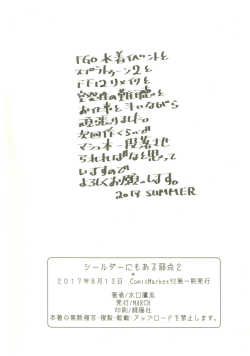 FGO水着イベントと
スプラトゥーン2と
FF12リメイクと
お仕事としながら
頑張りました。
次回作くらいで
マシュ本一段落させ
られればなと思って
いますので
よろしくお願いします。
2017 SUMMER
シールダーにもある弱点2
2017年8月13日 ComicMarket92第一刷発行
発行/MARCH
本書の無断複写・複製・転載・アップロードを禁止します。